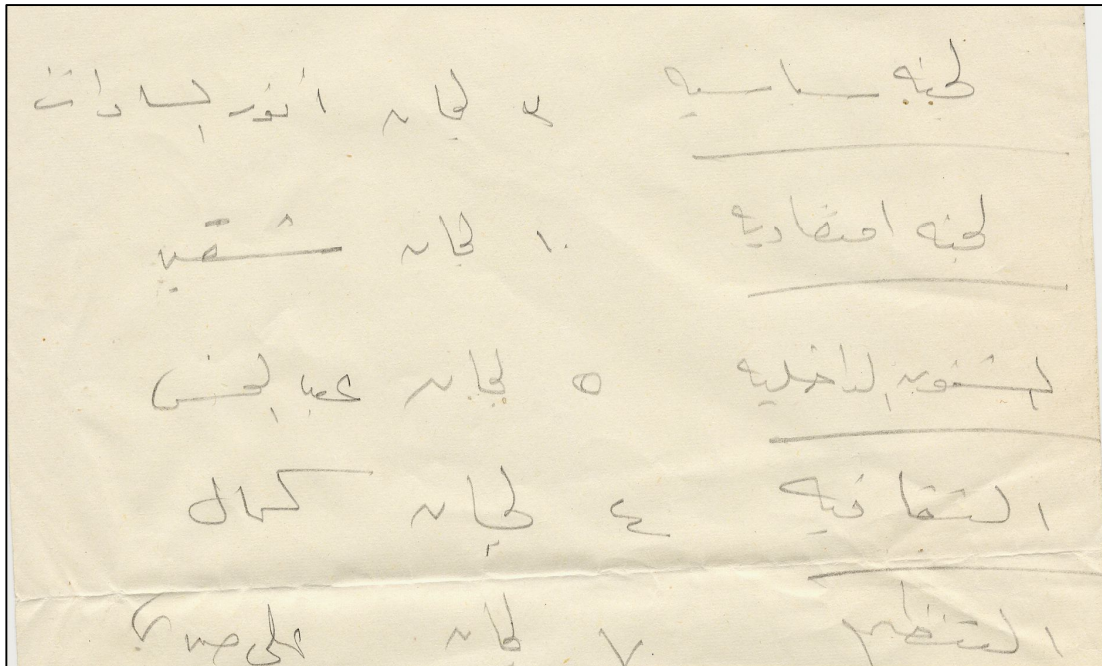 لجنه سياسيه ٣ لجان انور السادات
لجنه اقتصاديه ١٠ لجان شقير
الشئون الداخليه ٥ لجان
الثقافيه ٤ لجان كمال
التنظيم ٧ لجان على صبرى